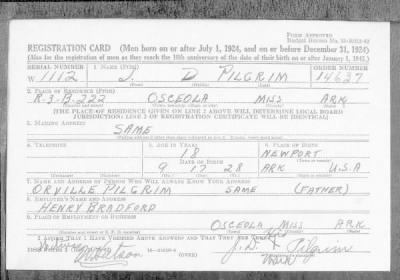 FORM APPROVED
REGISTRATION CARD (Men born on or after July 1, 1924, and on or before December 31, 1924)
(Also for the registration of men as they reach the 18th anniversary of the date of their birth on or after January 1, 1943.)
SERIAL NUMBER 1. NAME (Print) ORDER NUMBER
W 1112 J. D PILGRIM 14637
2. PLACE OF RESIDENCE (Print)
R.3.B.222 OSCEOLA MISS ARK
(THE PLACE OF RESIDENCE GIVEN ON LINE 2 ABOVE WILL DETERMINE LOCAL BOARD
JURISDICTION; LINE 2 OF REGISTRATION CERTIFICATE WILL BE IDENTICAL)
3. MAILING ADDRESS
SAME
4. TELEPHONE 5. AGE IN YEARS 6. PLACE OF BIRTH
18 NEWPORT
DATE OF BIRTH
9 17 28 ARK U.S.A
7. NAME AND ADDRESS OF PERSON WHO WILL ALWAYS KNOW YOUR ADDRESS
ORVILLE PILGRIM SAME (FATHER)
8. EMPLOYER'S NAME AND ADDRESS
HENRY BRADFORD
9. PLACE OF EMPLOYMENT OR BUSINESS
OSCEOLA MISS ARK
I AFFIRM THAT I HAVE VERIFIED ABOVE ANSWERS AND THAT THEY ARE TRUE.
J. D. X Pilgrim
(OVER) Mark